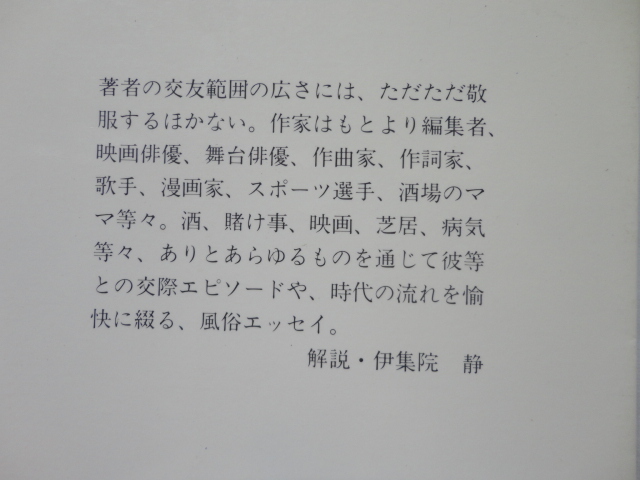 著者の交友範囲の広さには、ただただ敬
服するほかない。作家はもとより編集者、
映画俳優、舞台俳優、作曲家、作詞家、
歌手、漫画家、スポーツ選手、酒場のマ
マ等々。酒、賭け事、映画、芝居、病気
等々、ありとあらゆるものを通じて彼等
との交際エピソードや、時代の流れを愉
快に綴る、風俗エッセイ。
解説・伊集院　静